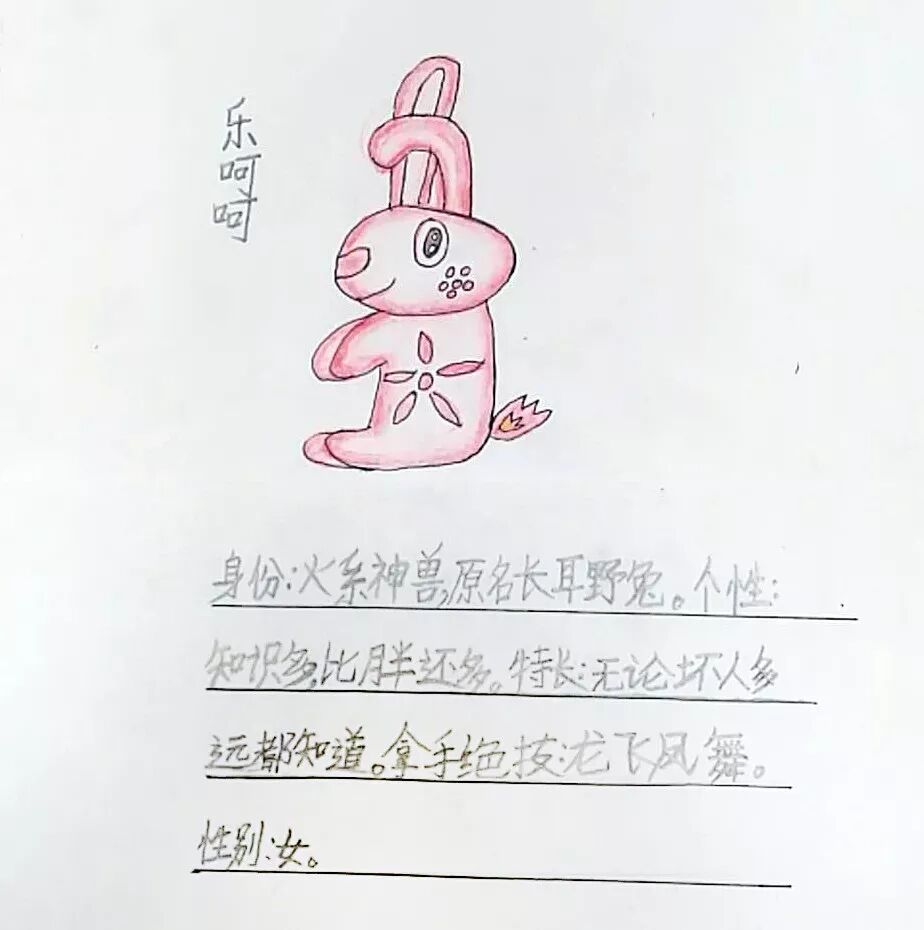 乐呵呵
身份:火系神兽,原名长耳野兔。个性:
知识多,比胖还多。特长:无论坏人多
远都知道。拿手绝技:龙飞凤舞。
性别:女。